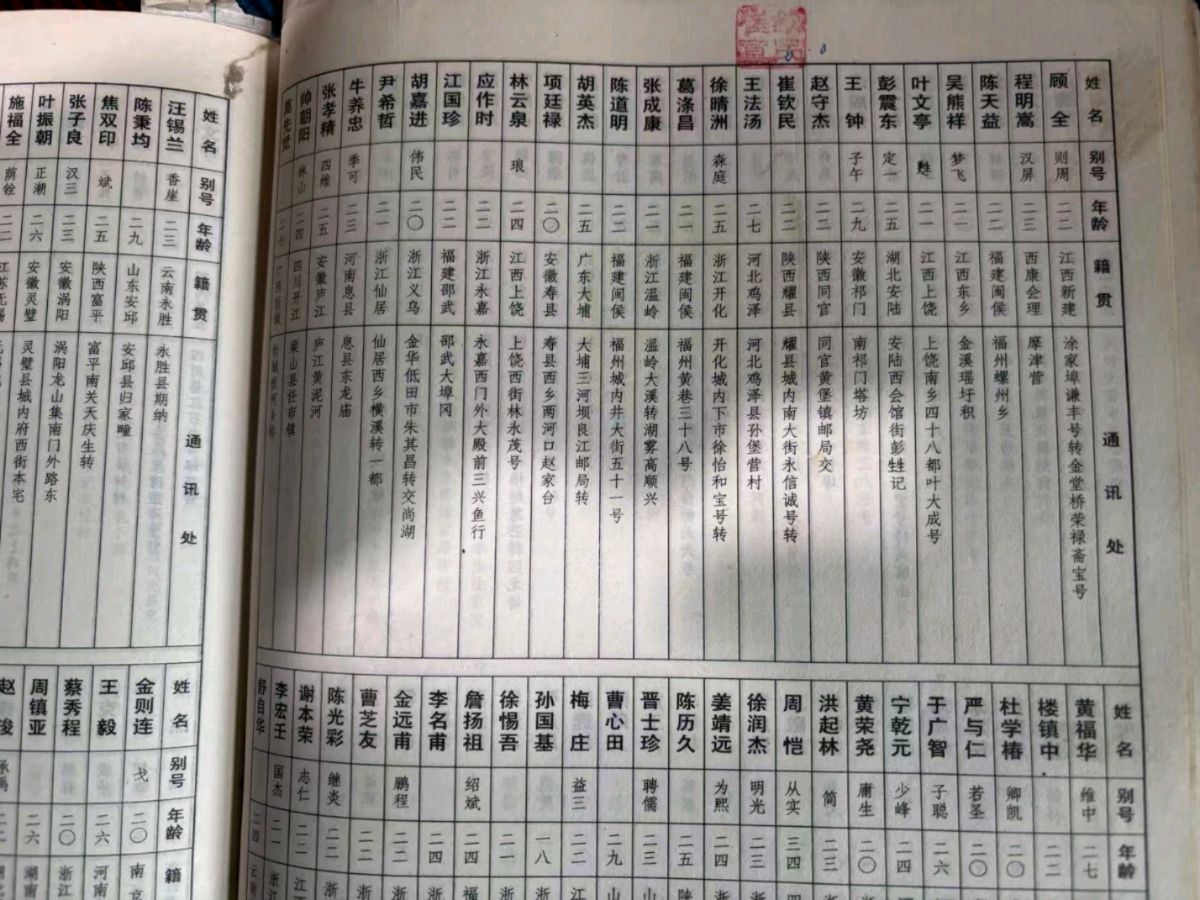 姓名 别号 年龄 籍贯 通讯处
顾全 则周 二二 江西新建 涂家埠谦丰号转金堂桥荣禄斋宝号
程明嵩 汉屏 二三 西康会理 摩津营
陈天益 二二 福建闽侯 福州螺州乡
吴熊祥 梦飞 二一 江西东乡 金溪瑶圩积
叶文亭 甦 二一 江西上饶 上饶南乡四十八都叶大成号
彭震东 定一 二五 湖北安陆 安陆西会馆街彭甡记
王钟 子午 二九 安徽祁门 南祁门塔坊
赵守杰 二二 陕西同官 同官黄堡镇邮局交
崔钦民 二二 陕西耀县 耀县城内南大街永信诚号转
王法汤 二七 河北鸡泽 河北鸡泽县孙堡营村
徐晴洲 森庭 二五 浙江开化 开化城内下市徐怡和宝号转
葛涤昌 二一 福建闽侯 福州黄巷三十八号
张成康 二一 浙江温岭 温岭大溪转湖雾高顺兴
陈道明 二二 福建闽侯 福州城内井大街五十一号
胡英杰 二五 广东大埔 大埔三河坝良江邮局转
项廷禄 二〇 安徽寿县 寿县西乡两河口赵家台
林云泉 琅 二四 江西上饶 上饶西街林永茂号
应作时 二二 浙江永嘉 永嘉西门外大殿前三兴鱼行
江国珍 二二 福建邵武 邵武大埠冈
胡嘉进 伟民 二〇 浙江义乌 金华低田市朱其昌转交尚湖
尹希哲 二一 浙江仙居 仙居西乡横溪转一都
牛养忠 季可 二三 河南息县 息县东龙庙
张孝精 四维 二五 安徽庐江 庐江黄泥河
帅朝阳 林山 二四 四川开江 梁山县任市镇
先觉 二七
姓名 别号 年龄
黄福华 维中 二七
楼镇中 二二
杜学椿 卿凯 二〇
严与仁 若圣 二〇
于广智 子聪 二六
宁乾元 少峰 二四
黄荣尧 庸生 二〇
洪起林 简 二三
周恺 从实 三四
徐润杰 明光 二三
姜靖远 为熙 二四
陈历久 二五 陕
晋士珍 聘儒 二三 山
曹心田 二九 山
梅庄 益三 二二 江
孙国基 一八 浙
徐惕吾 二一 浙
詹扬祖 绍斌 二四 福
李名甫 二四 浙
金远甫 鹏程 二二 浙
曹芝友 二二 浙
陈光彩 继炎 二二 浙
谢本荣 志仁 二二 浙
李宏王 国杰 二二 浙江
舒自华 二四 云南
姓名 别号 年龄 籍贯 通讯处
汪锡兰 香崖 二三 云南永胜 永胜县期纳
陈秉均 二九 山东安邱 安邱县归家疃
焦双印 斌 二五 陕西富平 富平南关天庆生转
张子良 汉三 二三 安徽涡阳 涡阳龙山集南门外路东
叶振朝 正潮 二六 安徽灵璧 灵璧县城内府西街本宅
施福全 荫铨 二二 江苏无锡
姓名 别号 年龄 籍
金则连 戈 二〇 南京
王毅 二六 河南
蔡秀程 二〇 浙江
周镇亚 二六 湖南
赵骏 承禹 二二